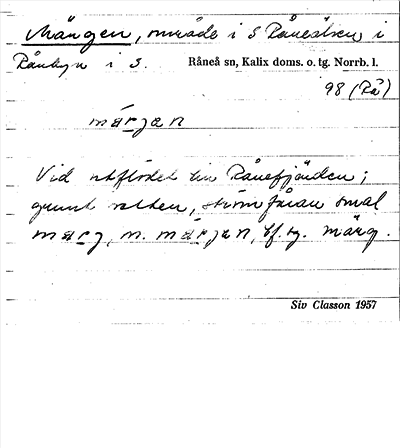 Mängen, område i S Råneälven i
Rånbyn i S. Råneå sn, Kalix doms. o. tg. Norrb. l.
98 (Rå)
märjen
Vid utflödet till Rånefjärden;
grunt vatten, strömfåran smal
marg, n. märjan, bf. sg. märg.
Siv Classon 1957